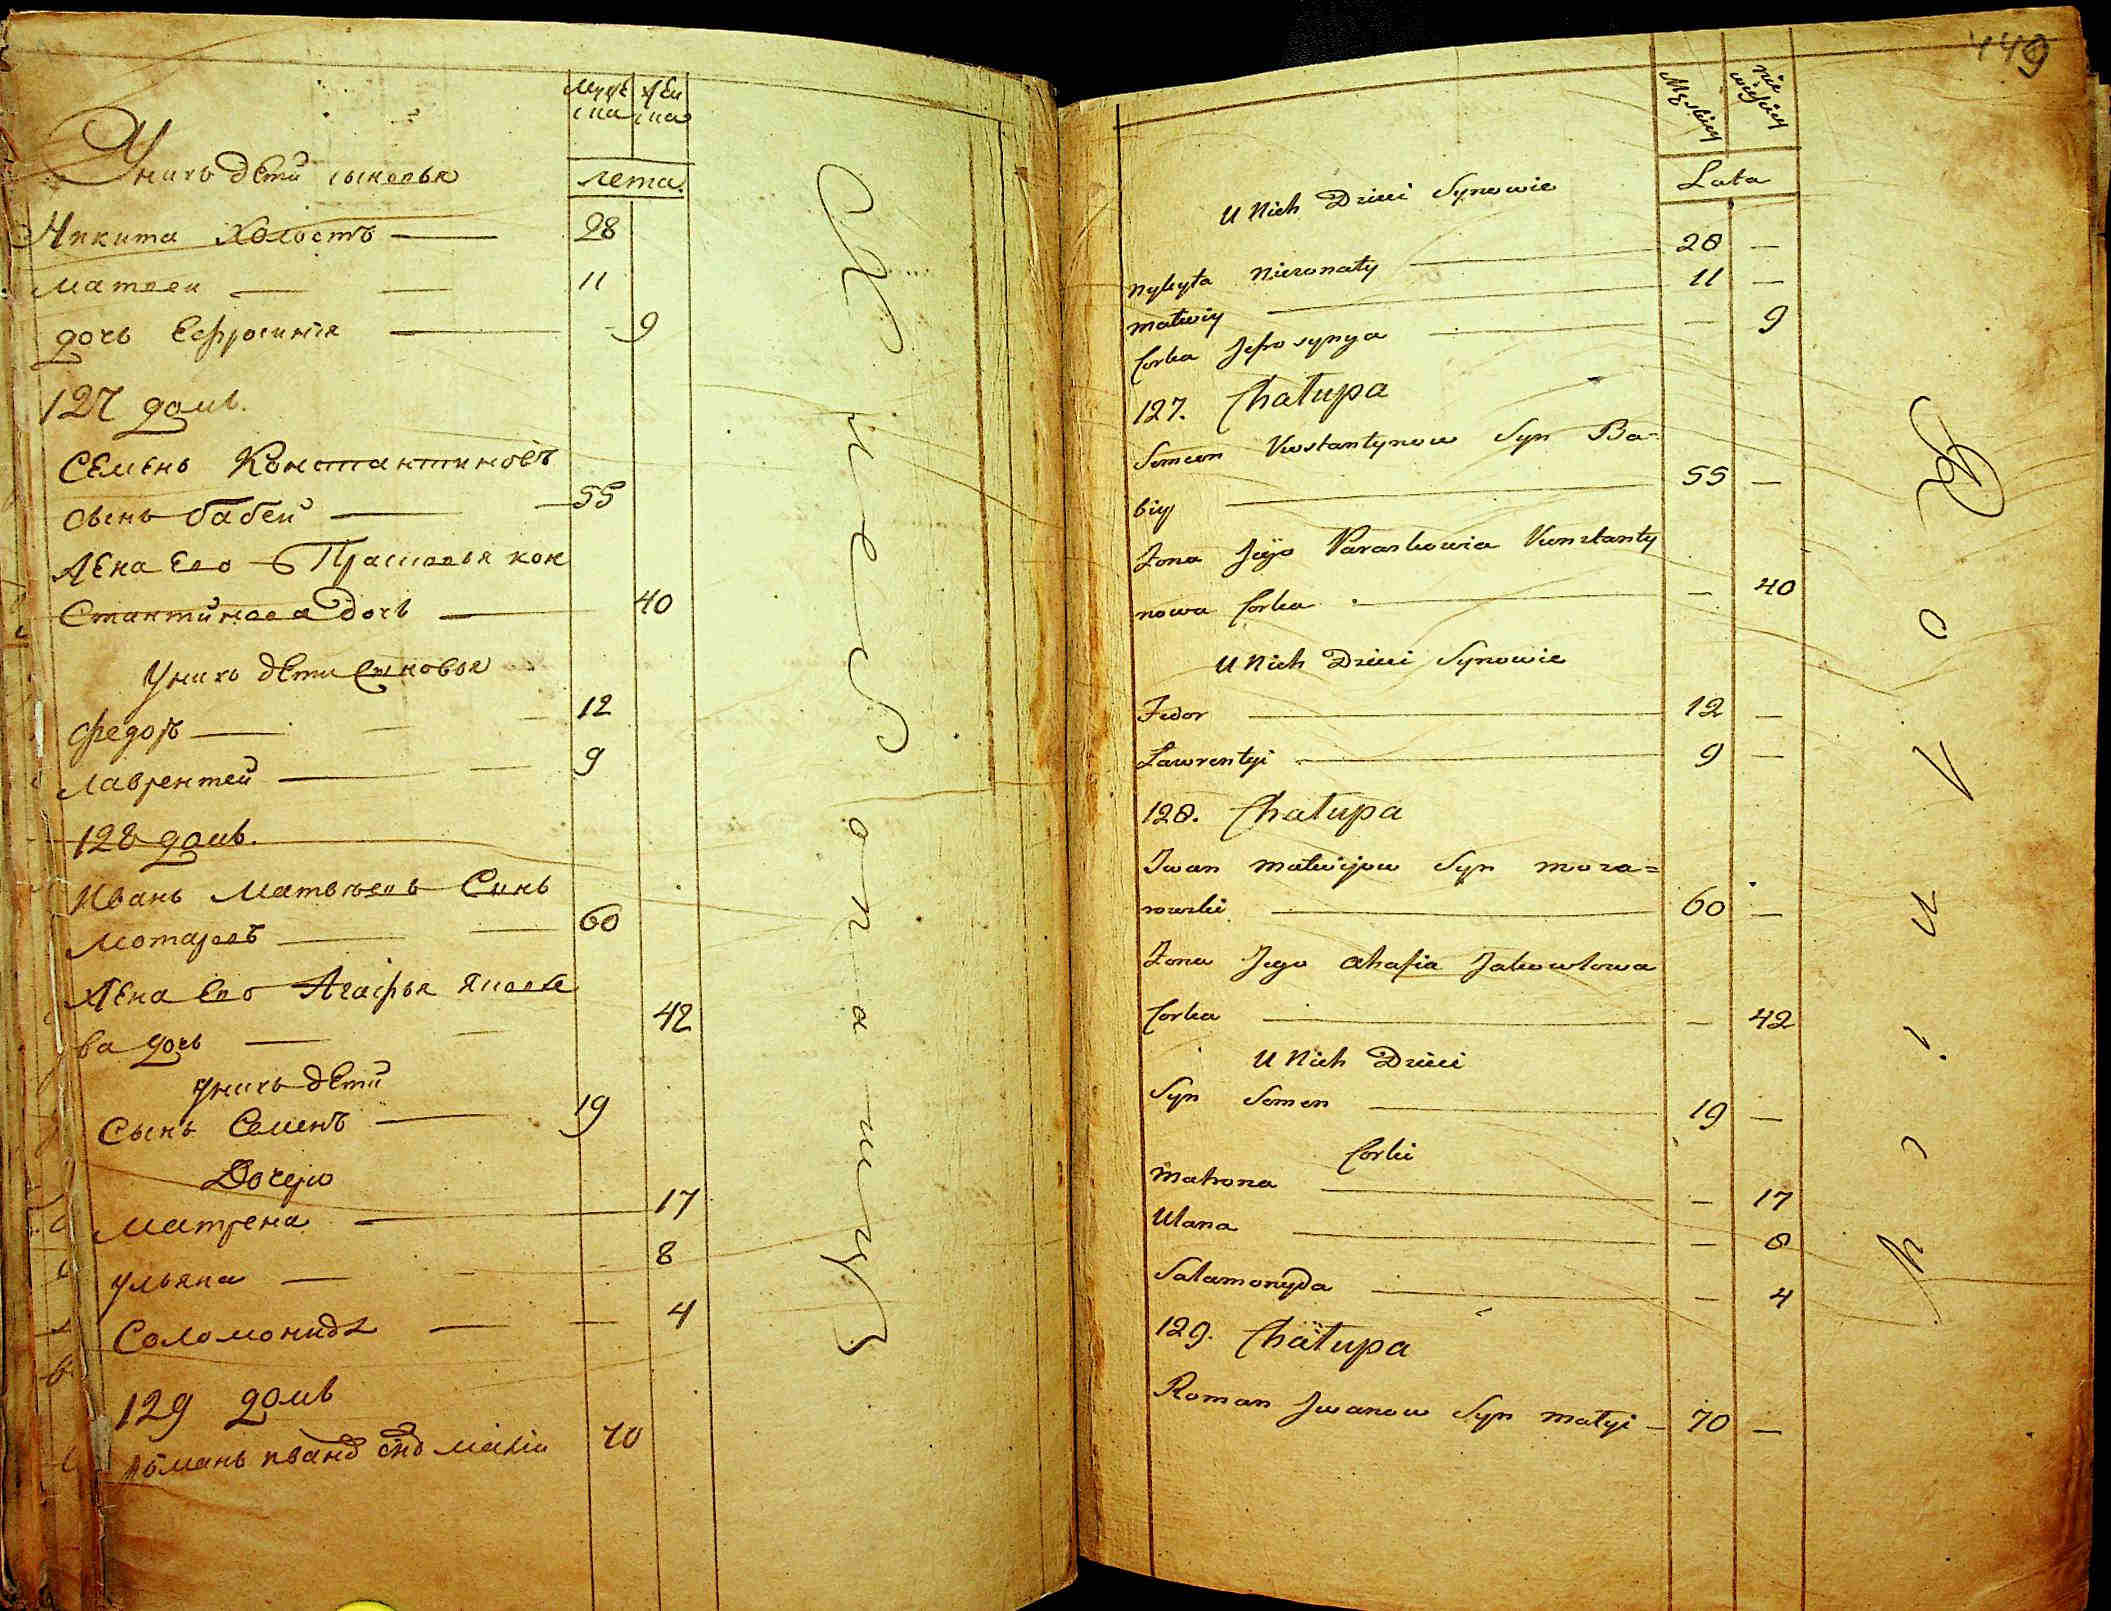 мужеска женска
лета
У нихъ дети сыновья
Никита холостъ — 28
матвеи — — 11
дочь Ефросинія — 9
127 домъ.
Семенъ Константиновъ
сынъ бабей — 55
жена Его Прасковья кон
стантинова дочь — 40
У нихъ дети сыновья
Федоръ — 12
лаврентей — 9
128 домъ.
Иванъ Матвѣевъ Сынъ
— 60
жена Ево Агафья яковле
ва дочь — 42
у нихъ дети
Сынъ Семенъ — 19
Дочери
матрена — 17
ульяна — 8
Соломонида — 4
129 домъ
Романъ Иванов снъ 70
149
Męskiey niewieściey
Lata
U Nich Dzieci Synowie
Nykyta Niezonaty — 28 —
Matwiy — 11 —
Corka Jefrosynya — — 9
127. Chałupa
Semeon Kostantynow Syn Ba=
biy — 55 —
Zona Jego Paraskowia Konstanty
nowa Corka — — 40
U Nich Dzieci Synowie
Fedor — 12 —
Lawrentyi — 9 —
128. Chałupa
Iwan Matwijow Syn
— 60 —
Zona Jego Ahafia Jakowlowa
Corka — — 42
U Nich Dzieci
Syn Semen — 19 —
Corki
Matrona — — 17
Ulana — — 8
Salamonyda — — 4
129. Chałupa
Roman Jwanow Syn Matyi — 70 —